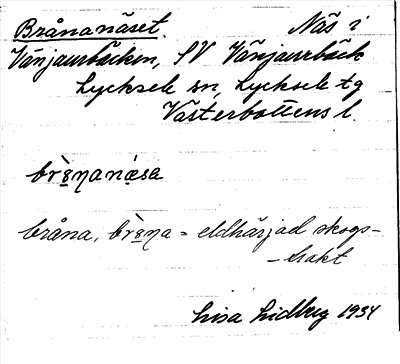 Brånanäset. Näs i
Vänjaurbäcken, SV Vänjaurbäck
Lycksele sn, Lycksele tg
Västerbottens l.
brå̀ṇanä́sa
bråna, brå̀ṇa = eldhärjad skogs-
-trakt
Lisa Lidberg 1934